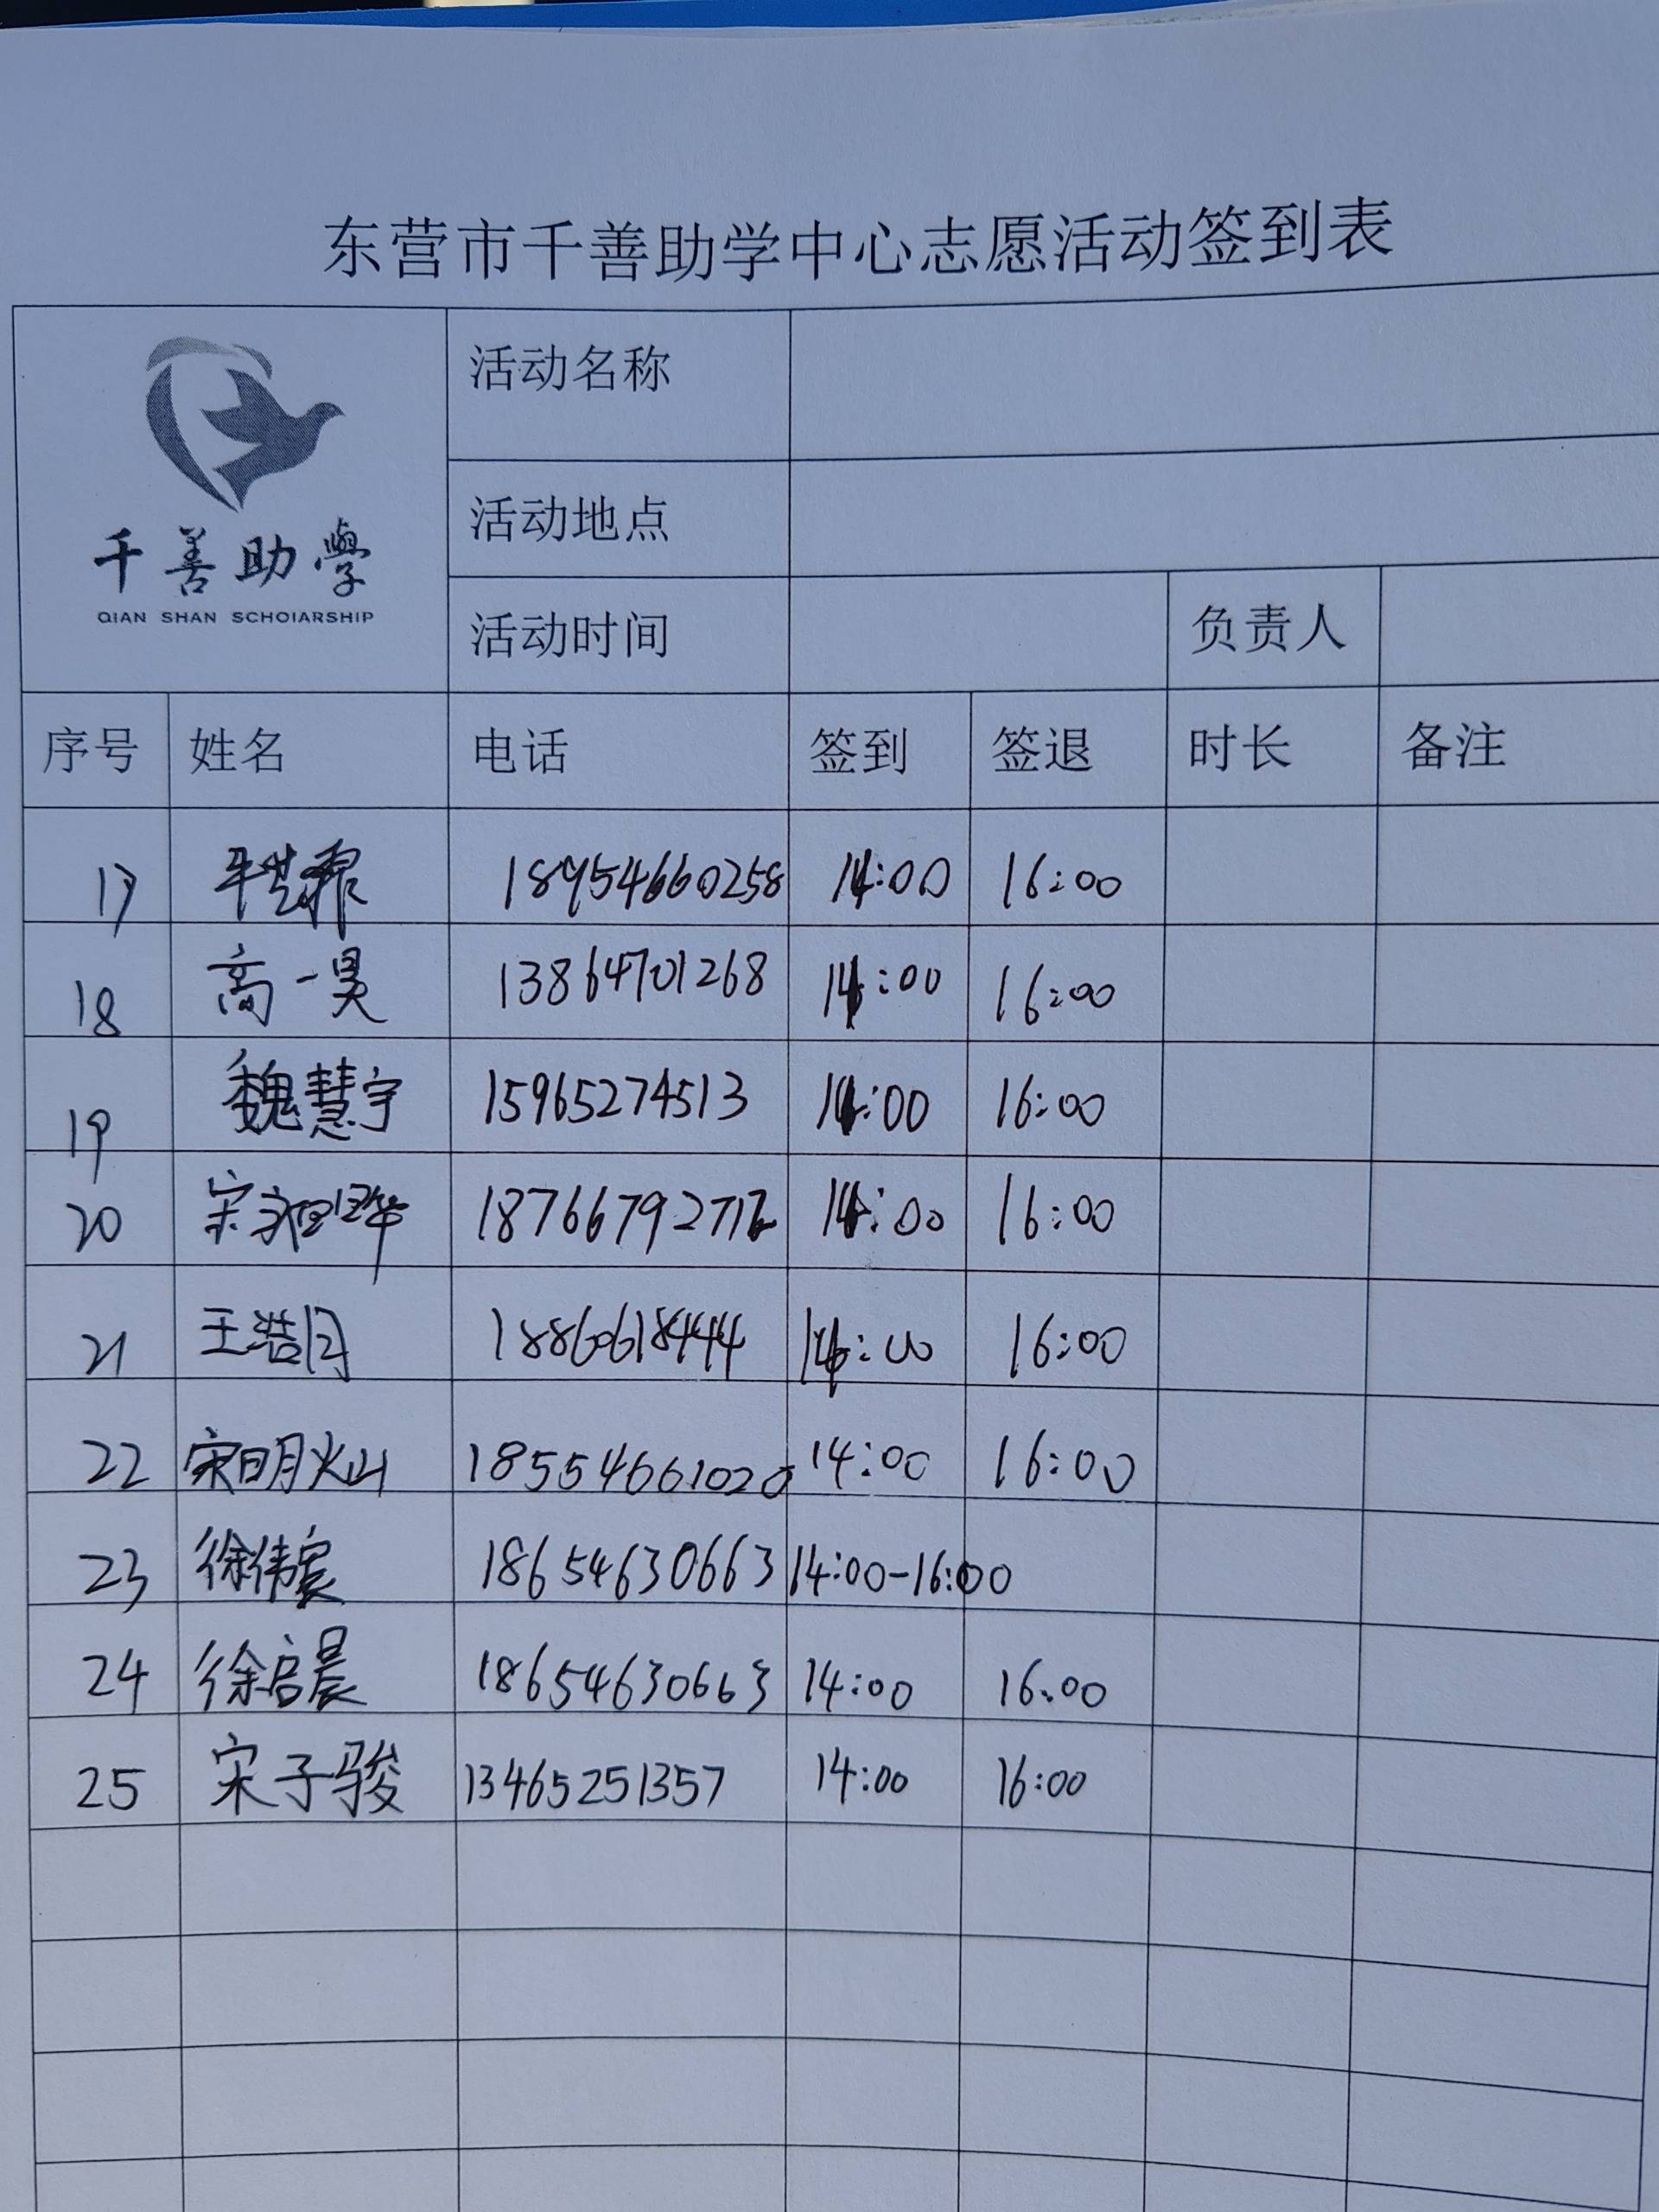 东营市千善助学中心志愿活动签到表
千善助學
QIAN SHAN SCHOIARSHIP
活动名称
活动地点
活动时间 负责人
序号 姓名 电话 签到 签退 时长 备注
17 18954660258 14:00 16:00
18 高一昊 13864701268 14:00 16:00
19 魏慧宇 15965274513 14:00 16:00
20 宋 1876679271 14:00 16:00
21 王浩 18860618444 14:00 16:00
22 宋明灿 18554661020 14:00 16:00
23 徐伟宸 18654630663 14:00-16:00
24 徐启晨 18654630663 14:00 16:00
25 宋子骏 13465251357 14:00 16:00